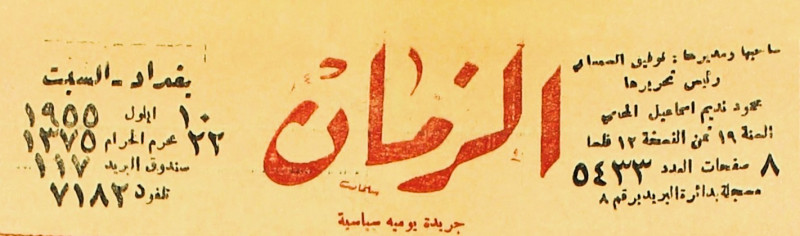 صاحبها ومديرها : توفيق السمعاني
ورئيس تحريرها
محمود نديم اسماعيل المحامي
السنة ١٩ ثمن النسخة ١٢ فلسا
٨ صفحات العدد ٥٤٣٣
مسجلة بدائرة البريد برقم ٨
الزمان
سلمان
جريدة يومية سياسية
بغداد - السبت
١٠ ايلول ١٩٥٥
٢٢ محرم الحرام ١٣٧٥
صندوق البريد ١١٧
تلفون ٧١٨٢